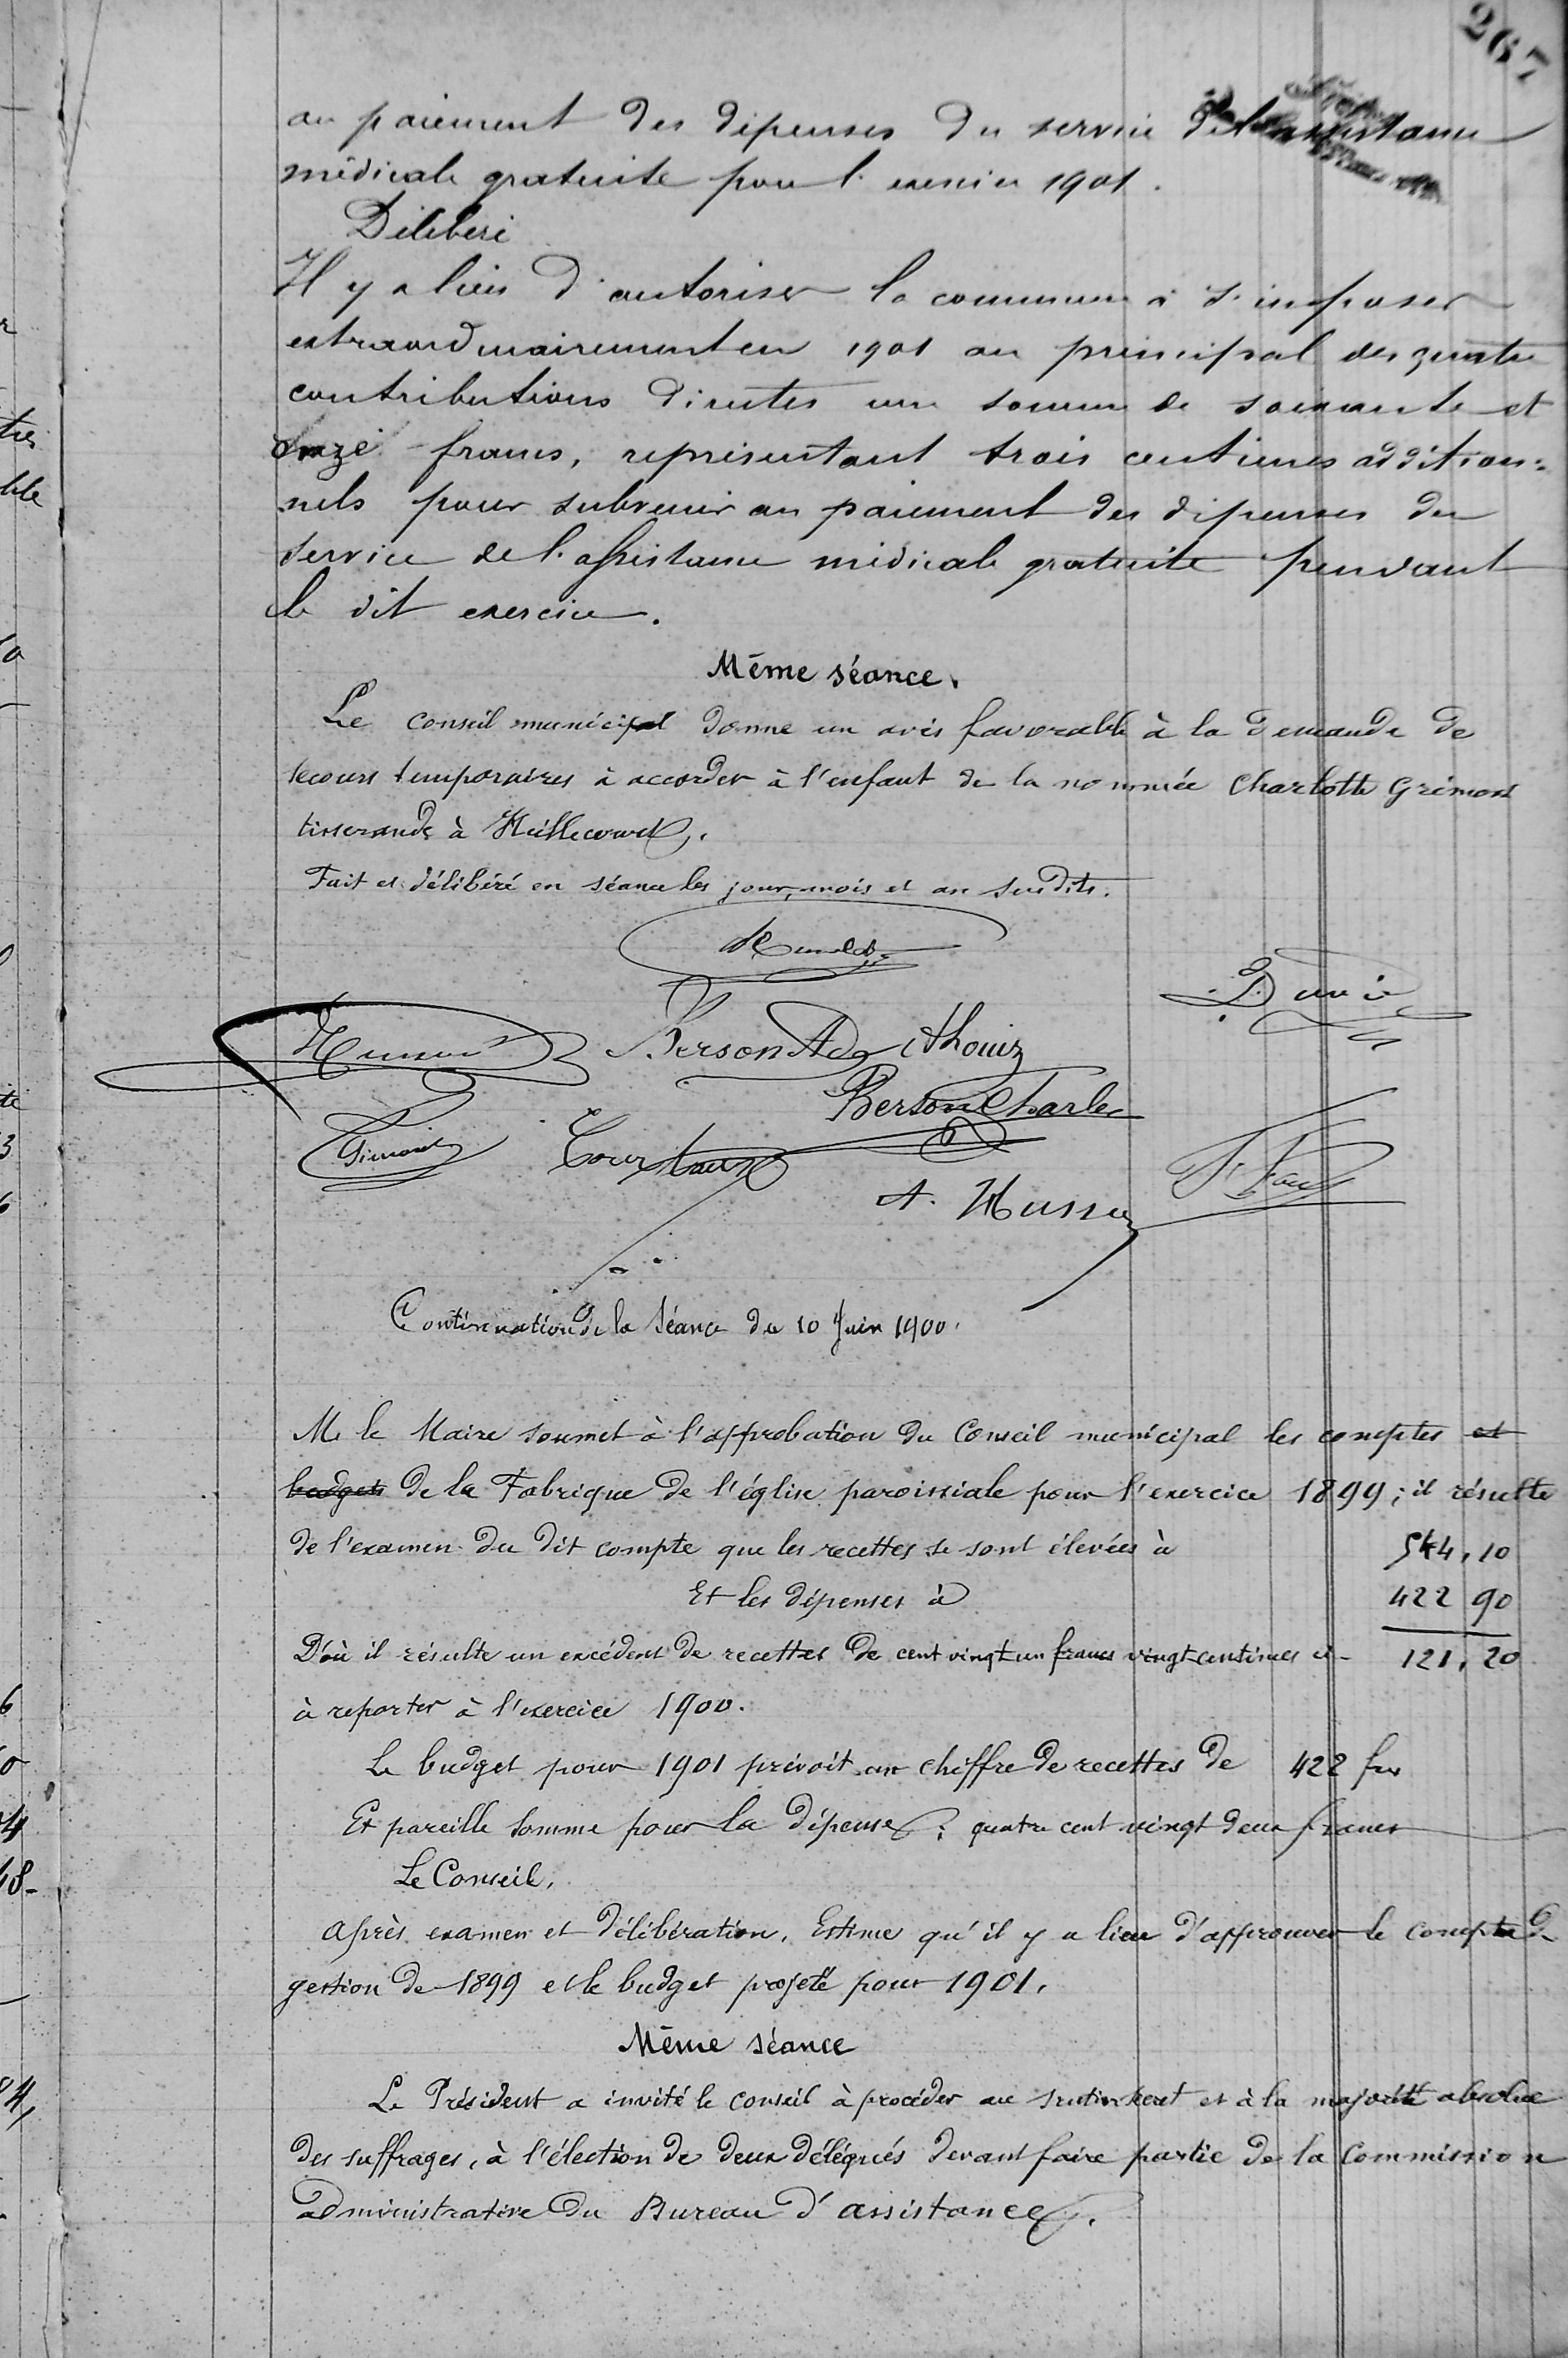 267
au paiement des dépenses du service de l'assistance
médicale gratuite pour l'exercice 1901.
Délibère
Il y a lieu d'autoriser la commune à s'imposer
extraordinairement en 1901 au principal des quatre
contributions directes une somme de soixante et
onze francs, représentant trois centimes addition=
nels pour subvenir au paiement des dépenses du
service de l'assistance médicale gratuite pendant
le dit exercice.
Même séance.
Le Conseil municipal donne un avis favorable à la demande de
secours temporaires à accorder à l'enfant de la nommée Charlotte
tisserande à
Fait et délibéré en séance les jour, mois et an susdits.
Berson Ad Athouiz
Berson Charles
A. Husson
Continuation de la Séance du 10 Juin 1900.
M. le Maire soumet à l'approbation du Conseil municipal les comptes et
budgets de la Fabrique de l'église paroissiale pour l'exercice 1899; il résulte
de l'examen du dit compte que les recettes se sont élevées à 544,10
Et les dépenses à 422 90
D'où il résulte un excédent de recettes de cent vingt un francs vingt centimes ci- 121,20
à reporter à l'exercice 1900.
Le budget pour 1901 prévoit un chiffre de recettes de 422 frs
Et pareille somme pour la dépense; quatre cent vingt deux francs
Le Conseil,
Après examen et délibération, Estime qu'il y a lieu d'approuver le compte de
gestion de 1899 et le budget projeté pour 1901.
Même séance
Le Président a invité le conseil à procéder au scrutin secret et à la majorité absolue
des suffrages, à l'élection de deux délégués devant faire partie de la Commission
administrative du Bureau d'assistance.